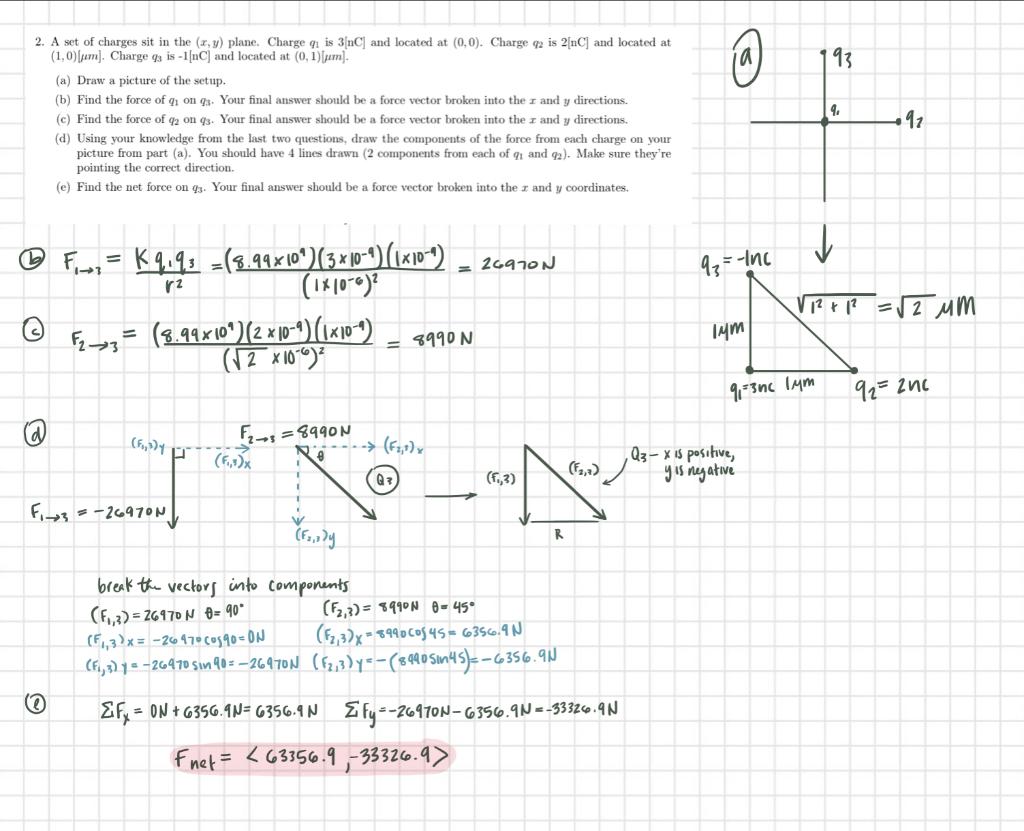 2. A set of charges sit in the (x, y) plane. Charge q₁ is 3[nC] and located at (0,0). Charge q₂ is 2[nC] and located at
(1,0)[μm]. Charge q₃ is -1[nC] and located at (0,1)[μm].
(a) Draw a picture of the setup.
(b) Find the force of q₁ on q₃. Your final answer should be a force vector broken into the x and y directions.
(c) Find the force of q₂ on q₃. Your final answer should be a force vector broken into the x and y directions.
(d) Using your knowledge from the last two questions, draw the components of the force from each charge on your
picture from part (a). You should have 4 lines drawn (2 components from each of q₁ and q₂). Make sure they're
pointing the correct direction.
(e) Find the net force on q₃. Your final answer should be a force vector broken into the x and y coordinates.
(a)
q₃
q₁
q₂
(b) F₁→₃ = K q₁q₃ / r² = (8.99×10⁹)(3×10⁻⁹)(1×10⁻⁹) / (1×10⁻⁶)² = 26970N
q₃ = -1nC
√1² + 1² = √2 μM
1μm
q₁=3nc 1μm q₂= 2nC
(c) F₂→₃ = (8.99×10⁹)(2×10⁻⁹)(1×10⁻⁹) / (√2 ×10⁻⁶)² = 8990 N
(d)
F₂→₃ = 8990N
(F₁,₃)y
(F₁,₃)x
(F₂,₃)x
θ
Q3
F₁→₃ = -26970N
(F₂,₃)y
(F₁,3)
(F₂,3)
R
Q3 - x is positive,
y is negative
break the vectors into components
(F₁,3) = 26970N θ= 90° (F₂,3) = 8990N θ= 45°
(F₁,3)x = -26970cos90=0N (F₂,3)x = 8990cos45= 6356.9N
(F₁,3)y = -26970sin90= -26970N (F₂,3)y = -(8990sin45)= -6356.9N
(e) ΣFx = 0N + 6356.9N= 6356.9N ΣFy = -26970N - 6356.9N = -33326.9N
Fnet = < 63356.9 , -33326.9 >